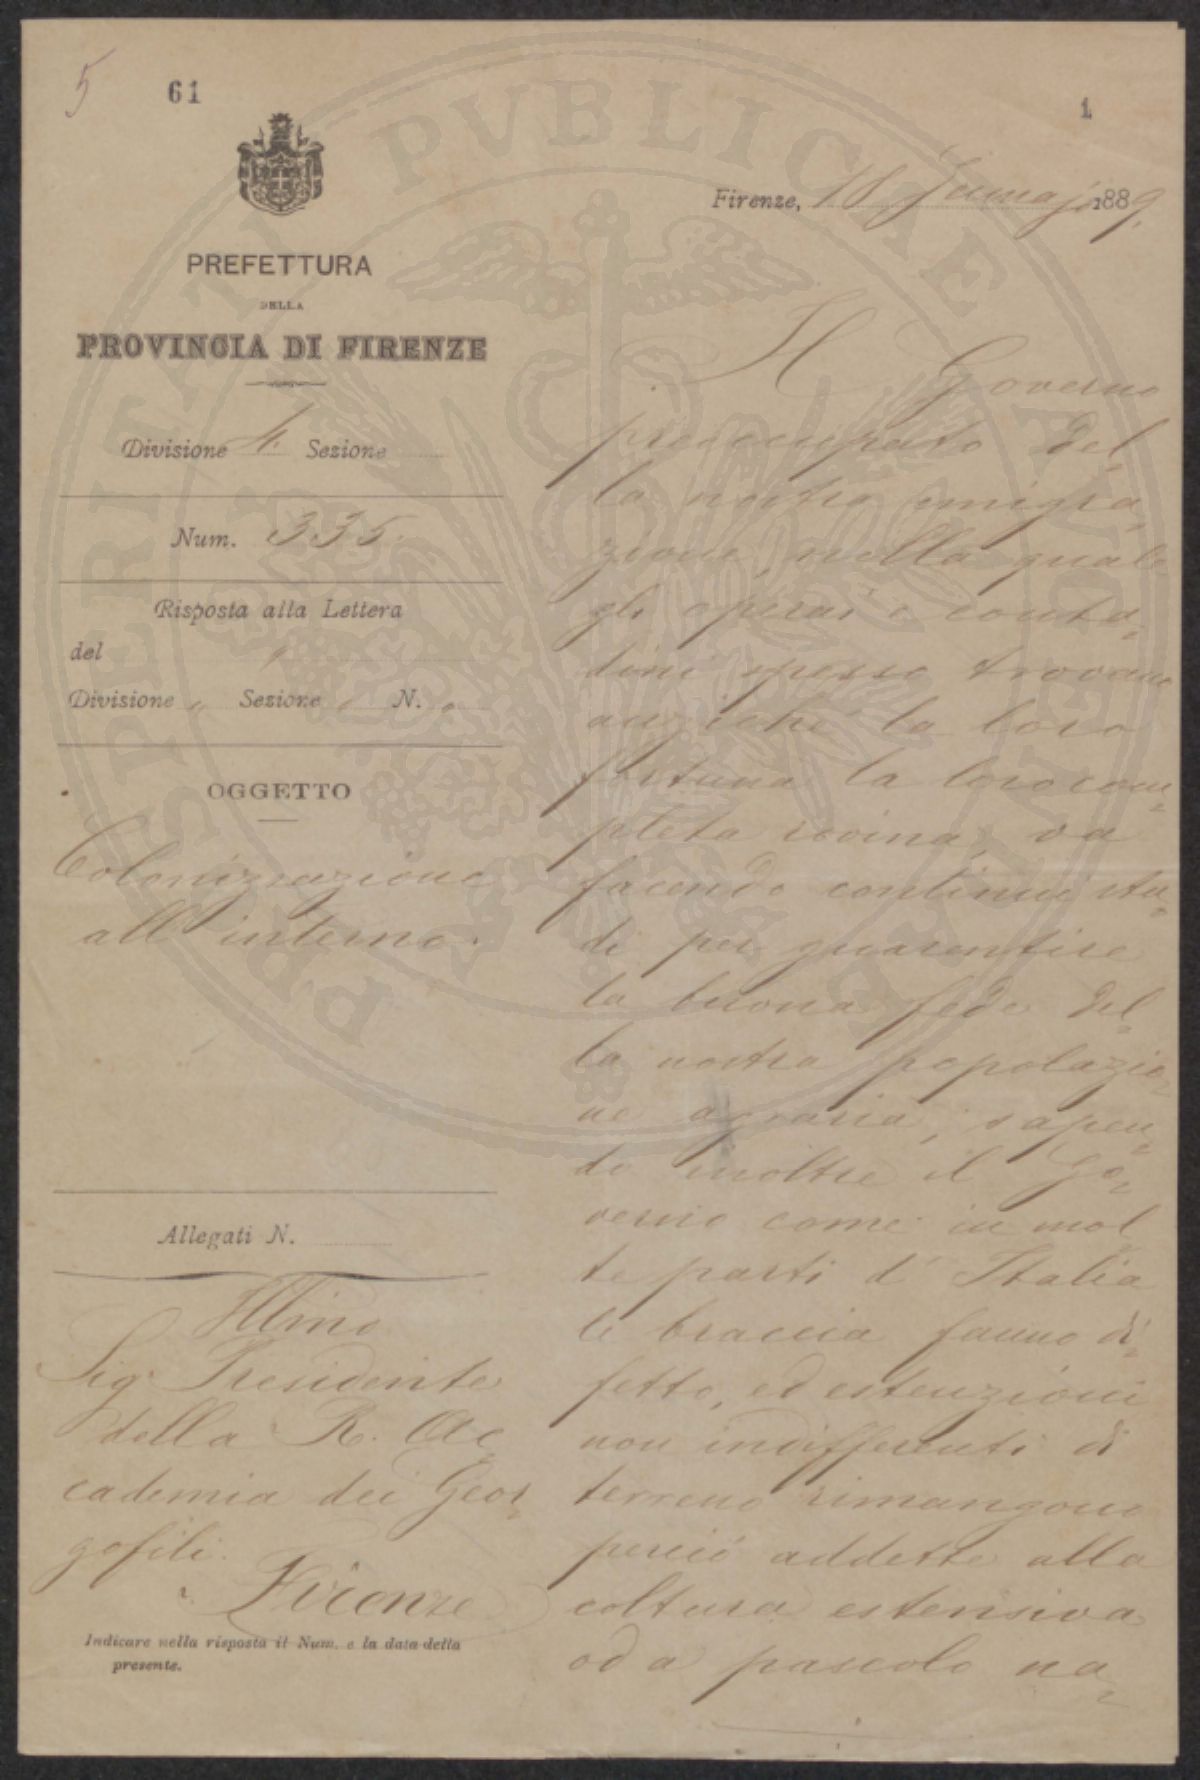 5
61
1
PREFETTURA
DELLA
PROVINCIA DI FIRENZE
Divisione 4. Sezione
Num. 335.
Risposta alla Lettera
del "
Divisione " Sezione " N. "
OGGETTO
Colonizzazione
all' interno.
Allegati N.
Illmo
Sig. Presidente
della R. Ac
cademia dei Geor-
gofili.
Firenze
Indicare nella risposta il Num. e la data della
presente.
Firenze, 18 Gennajo 1889.
Il Governo
preoccupato del-
la nostra emigra-
zione, nella quale
gli operai e conta-
dini spesso trovano
anzichè la loro
fortuna la loro com-
pleta rovina, va
facendo continui stu-
di per guarentire
la buona fede del-
la nostra popolazio-
ne agraria; sapen-
do inoltre il Go-
verno come in mol-
te parti d' Italia
le braccia fanno di-
fetto, ed estenzioni
non indifferenti di
terreno rimangono
perciò addette alla
coltura estensiva
od a pascolo na-
PROSPERITATI PVBLICAE AVGENDAE